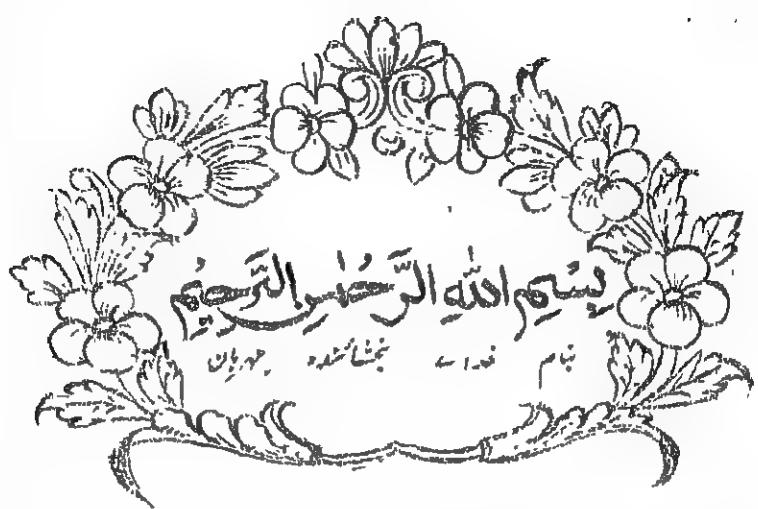 بِسْمِ اللهِ الرَّحْمٰنِ الرَّحِيْمِ
بنام خدای بخشاینده مهربان